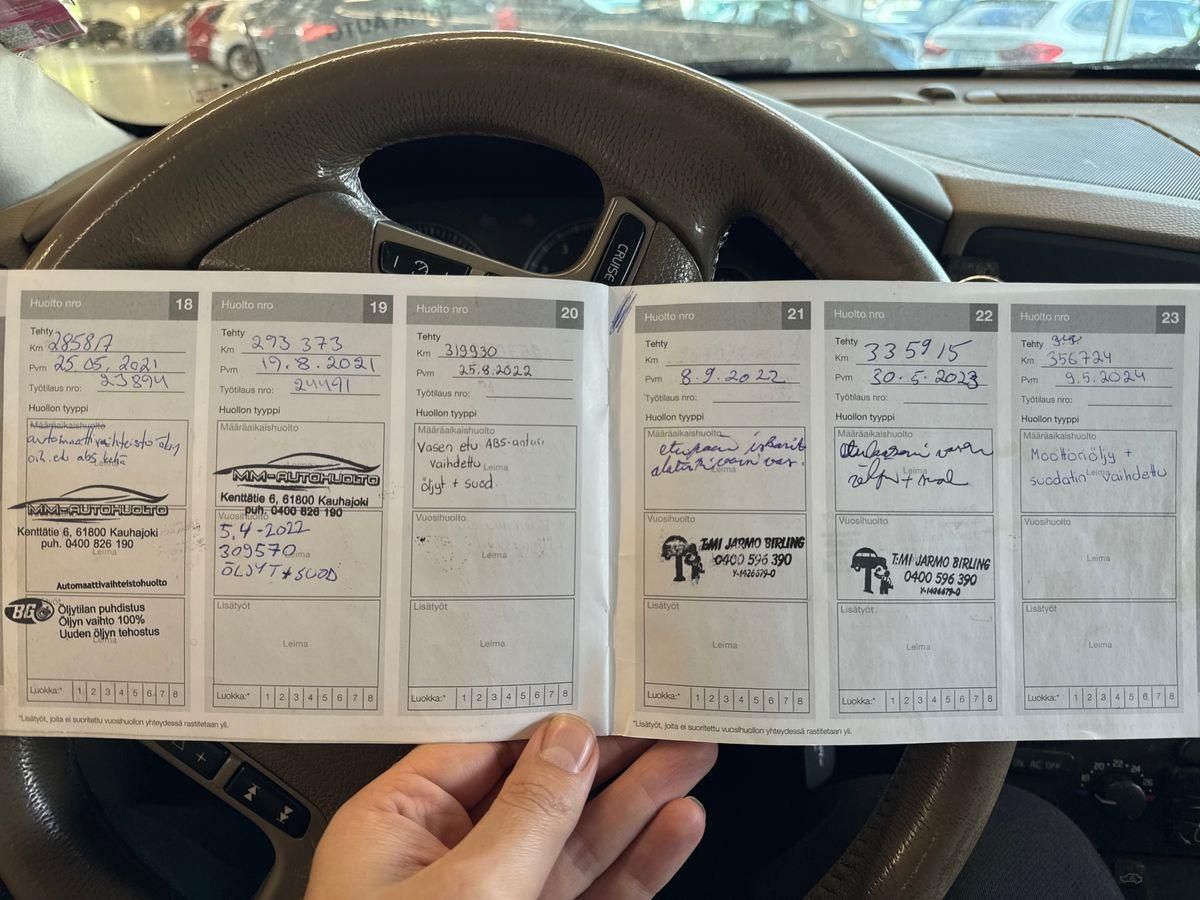 CRUISE
Huolto nro 18
Tehty
Km 285817
Pvm 25.05.2021
Työtilaus nro: 23894
Huollon tyyppi
Määräaikaishuolto
automaattivaihteisto öljy
oik. etu abs
MM-AUTOHUOLTO
Kenttätie 6, 61800 Kauhajoki
puh. 0400 826 190
Leima
Automaattivaihteistohuolto
BG
Öljytilan puhdistus
Öljyn vaihto 100%
Uuden öljyn tehostus
Leima
Luokka:* 1 2 3 4 5 6 7 8
Huolto nro 19
Tehty
Km 293 373
Pvm 19.8.2021
Työtilaus nro: 24491
Huollon tyyppi
Määräaikaishuolto
MM-AUTOHUOLTO
Kenttätie 6, 61800 Kauhajoki
puh. 0400 826 190
Vuosihuolto
5.4-2022
309570
Leima
ÖLJYT + SUOD
Lisätyöt
Leima
Luokka:* 1 2 3 4 5 6 7 8
Huolto nro 20
Tehty
Km 319930
Pvm 25.8.2022
Työtilaus nro:
Huollon tyyppi
Määräaikaishuolto
Vasen etu ABS-anturi
vaihdettu Leima
öljyt + suod.
Vuosihuolto
Leima
Lisätyöt
Leima
Luokka:* 1 2 3 4 5 6 7 8
*Lisätyöt, joita ei suoritettu vuosihuollon yhteydessä rastitetaan yli.
Huolto nro 21
Tehty
Km
Pvm 8.9.2022
Työtilaus nro:
Huollon tyyppi
Määräaikaishuolto
etupään iskarit
Leima
Vuosihuolto
T:MI JARMO BIRLING
0400 596 390
Y-1426679-0
Lisätyöt
Leima
Luokka:* 1 2 3 4 5 6 7 8
Huolto nro 22
Tehty
Km 335915
Pvm 30.5.2023
Työtilaus nro:
Huollon tyyppi
Määräaikaishuolto
Leima
Vuosihuolto
T:MI JARMO BIRLING
0400 596 390
Y-1426679-0
Lisätyöt
Leima
Luokka:* 1 2 3 4 5 6 7 8
Huolto nro 23
Tehty
Km 356724
Pvm 9.5.2024
Työtilaus nro:
Huollon tyyppi
Määräaikaishuolto
Moottoriöljy +
Leima
suodatin vaihdettu
Vuosihuolto
Leima
Lisätyöt
Leima
Luokka:* 1 2 3 4 5 6 7 8
*Lisätyöt, joita ei suoritettu vuosihuollon yhteydessä rastitetaan yli.
AC OFF
18 20 22 24 26